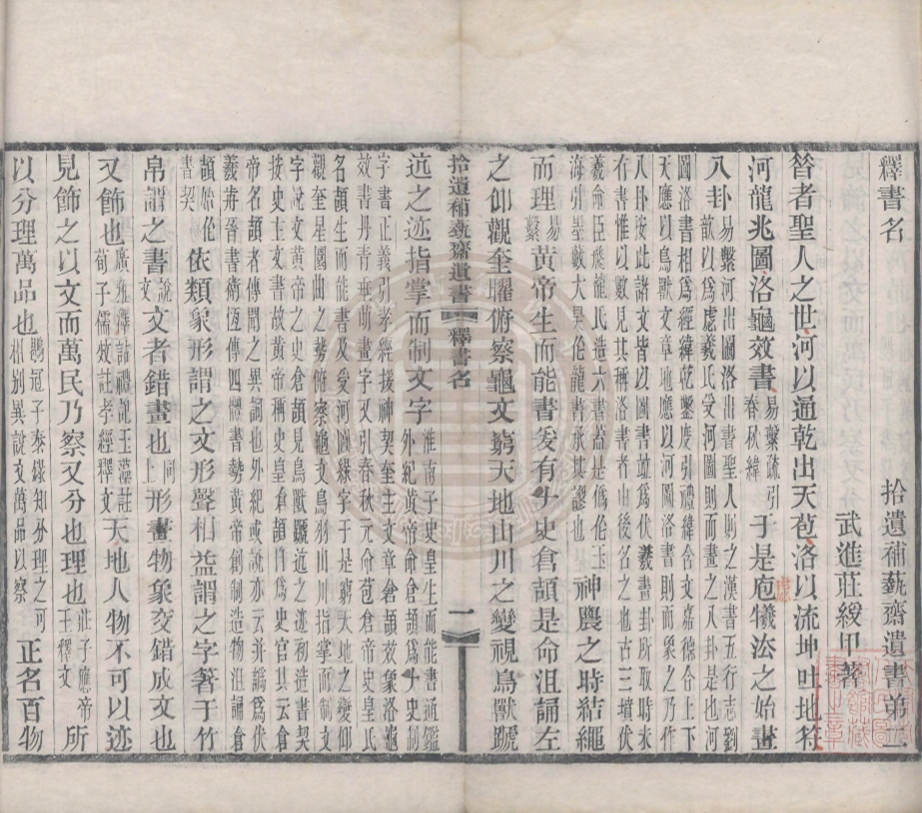 釋書名　拾遺補藝齋遺書弟一
武進莊綬甲著
昔者聖人之世河以通乾出天苞洛以流坤吐地符
河龍兆圖洛龜效書易繫疏引春秋緯于是庖犧法之始畫
八卦易繫河出圖洛出書聖人則之漢書五行志劉歆以爲虙羲氏受河圖則而畫之八卦是也河
圖洛書相爲經緯乾鑿度引禮緯含文嘉德合上下天應以鳥獸文章地應以河圖洛書則而之作
八卦按此諸文皆以圖書竝爲伏羲畫卦所取時未有書惟以數見其稱洛書者由後名之也三墳伏
羲命臣飛龍氏造六書葢是僞作玉海引墨藪大昊作龍書承其謬也神農之時結繩
而理易繫黃帝生而能書爰有史倉頡是命沮誦左
之仰觀奎曜俯察龜文窮天地山川之變視鳥獸蹏
拾遺補藝齋遺書　釋書名　一
迒之迹指掌而制文字淮南子史皇生而能書通鑑外紀黃帝命倉頡爲左史制
字書正義引孝經援神契奎主文章倉頡效象洛龜效書丹青垂萌畫字又引春秋元命苞倉帝史皇氏
名頡生而能書及受河圖綠字于是窮天地之變仰觀奎星圜曲之勢俯察龜文鳥羽山川指掌而制文
字說文敘黃帝之史倉頡見鳥獸蹏迒之迹初造書契按史主文書故史倉頡亦稱史皇倉頡自爲史官其云倉
帝名頡者傳聞之異詞也外紀或說亦云并譌爲伏羲靑晉書衛恆傳四體書勢黃帝創制造物有沮誦倉
頡始作書契依類象形謂之文形聲相益謂之字著于竹
帛謂之書說文文者錯畫也同上形畫物象交錯成文也
又飾也廣雅釋詁禮記玉藻註荀子儒效註孝經釋文天地人物不可以迹
見飾之以文而萬民乃察又分也理也莊子應帝王釋文所
以分理萬品也鶡冠子泰錄知分理之可相別異說文萬品以察正名百物